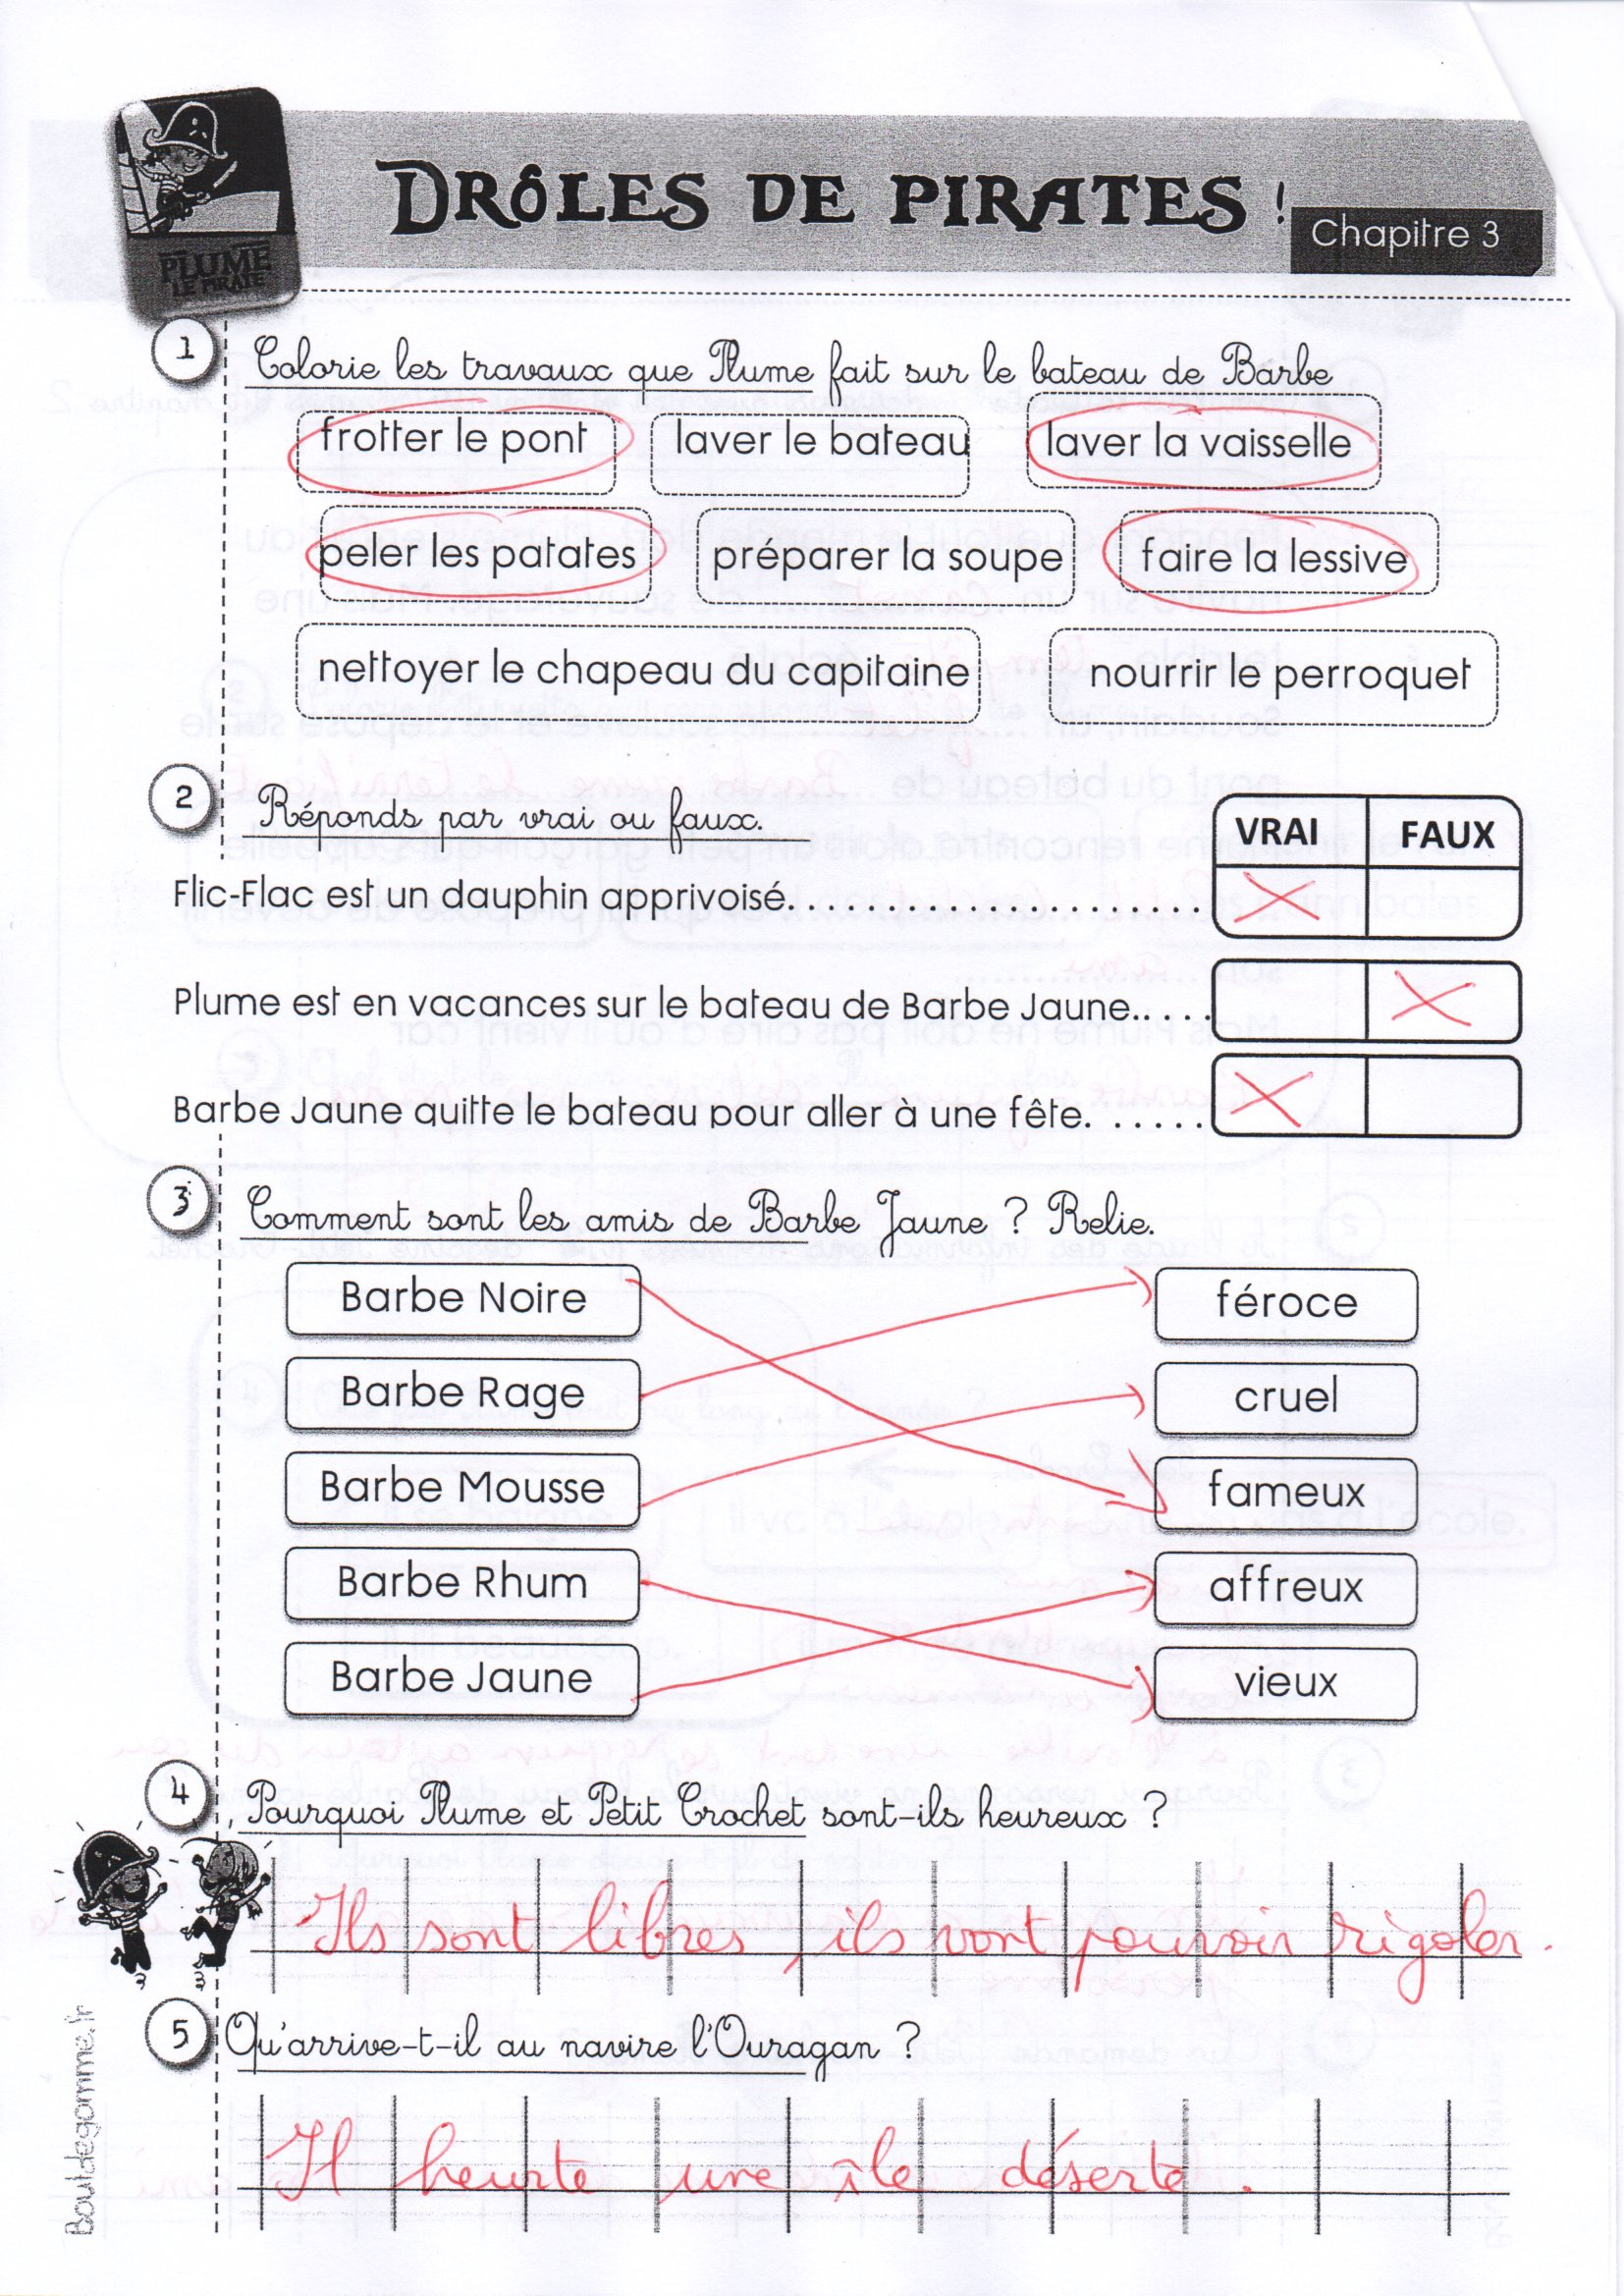 DRÔLES DE PIRATES !
Chapitre 3
PLUME
LE PIRATE
1 Colorie les travaux que Plume fait sur le bateau de Barbe
frotter le pont laver le bateau laver la vaisselle
peler les patates préparer la soupe faire la lessive
nettoyer le chapeau du capitaine nourrir le perroquet
2 Réponds par vrai ou faux. VRAI FAUX
Flic-Flac est un dauphin apprivoisé. . . . . . . . . . . . . . . . . . . . X
Plume est en vacances sur le bateau de Barbe Jaune. . . . . X
Barbe Jaune quitte le bateau pour aller à une fête. . . . . . X
3 Comment sont les amis de Barbe Jaune ? Relie.
Barbe Noire féroce
Barbe Rage cruel
Barbe Mousse fameux
Barbe Rhum affreux
Barbe Jaune vieux
4 Pourquoi Plume et Petit Crochet sont-ils heureux ?
Ils sont libres, ils vont pouvoir rigoler.
5 Qu'arrive-t-il au navire l'Ouragan ?
Il heurte une île déserte.
Boutdegomme.fr